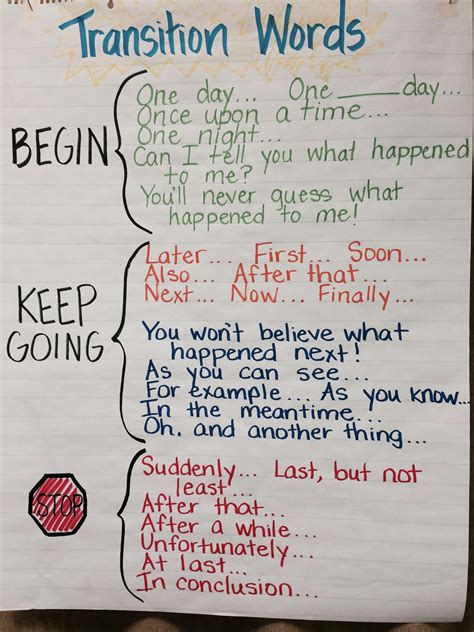 Transition Words
BEGIN
One day... One ____ day...
Once upon a time...
One night...
Can I tell you what happened
to me?
You'll never guess what
happened to me!
KEEP
GOING
Later... First... Soon...
Also... After that...
Next... Now... Finally...
You won't believe what
happened next!
As you can see...
For example... As you know...
In the meantime...
Oh, and another thing...
STOP
Suddenly... Last, but not
least...
After that...
After a while...
Unfortunately...
At last...
In conclusion...